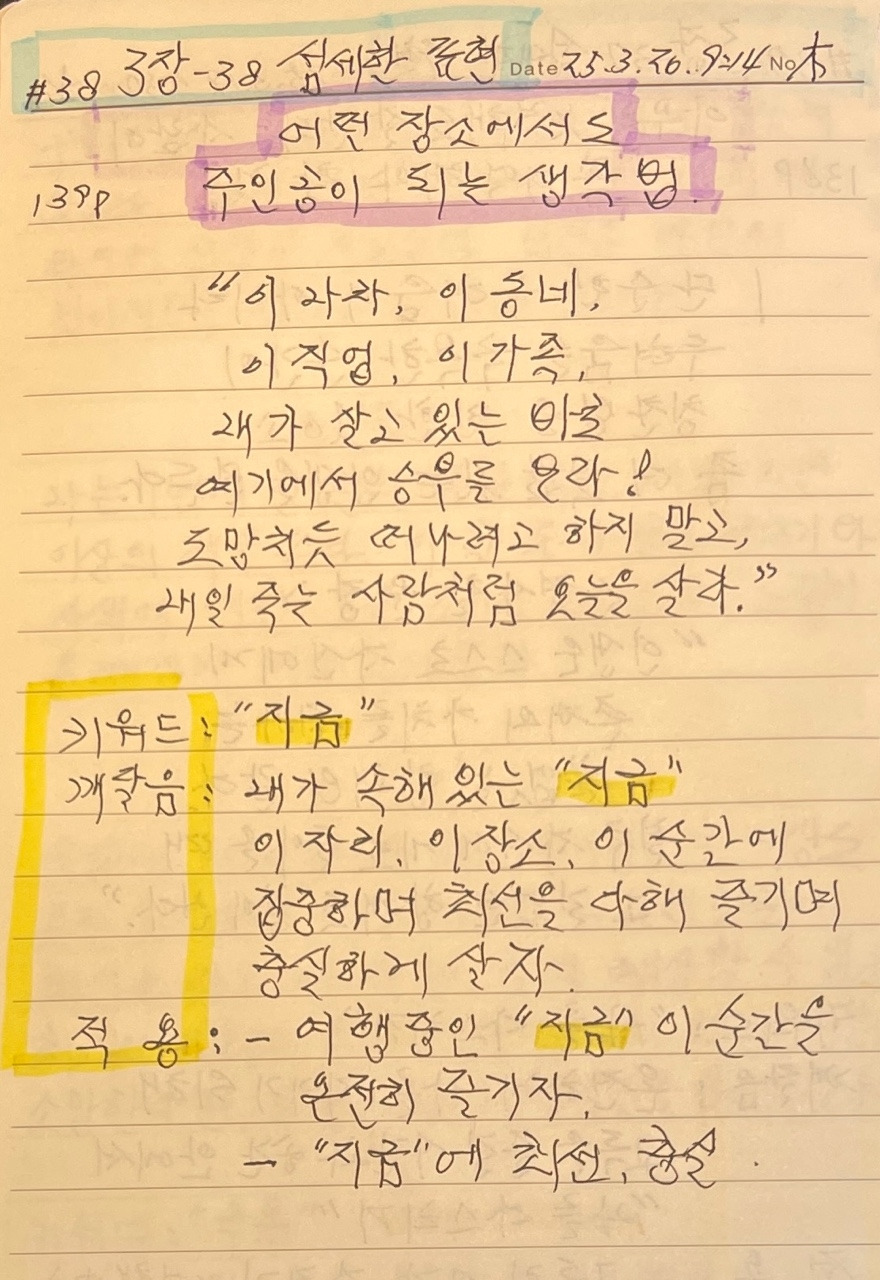 #38 3장-38 섬세한 표현 Date 25.3.20. 9:14 No 木
어떤 장소에서도
139p 주인공이 되는 생각법.
“이 과자, 이 동네,
이 직업, 이 가족,
내가 살고 있는 바로
여기에서 승부를 본라!
도망치듯 떠나려고 하지 말고,
내일 죽는 사람처럼 오늘을 살라.”
키워드 : “지금”
깨달음 : 내가 속해 있는 “지금”
이 자리, 이 장소, 이 순간에
집중하며 최선을 다해 즐기며
충실하게 살자.
적 용 : - 여행 중인 “지금” 이 순간을
온전히 즐기자.
- “지금”에 최선, 충실.